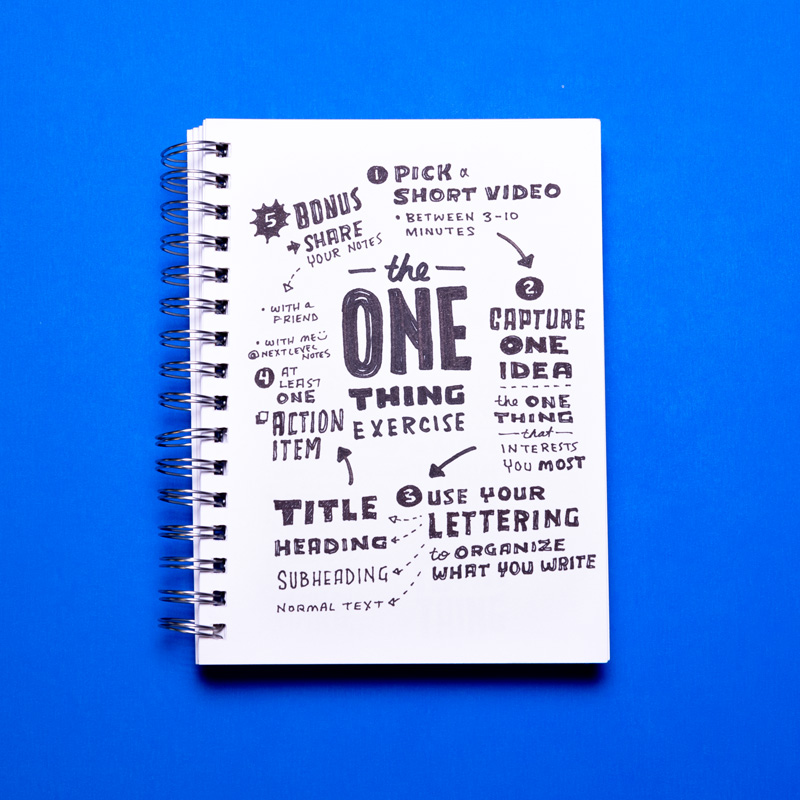 the
ONE
THING
EXERCISE
1. PICK a
SHORT VIDEO
• BETWEEN 3-10
MINUTES
2.
CAPTURE
ONE
IDEA
the ONE
THING
that
INTERESTS
YOU MOST
3 USE YOUR
LETTERING
to ORGANIZE
WHAT YOU WRITE
TITLE
HEADING
SUBHEADING
NORMAL TEXT
4 AT
LEAST
ONE
ACTION
ITEM
5 BONUS
SHARE
YOUR NOTES
• WITH a
FRIEND
• WITH ME
@NEXTLEVEL
NOTES